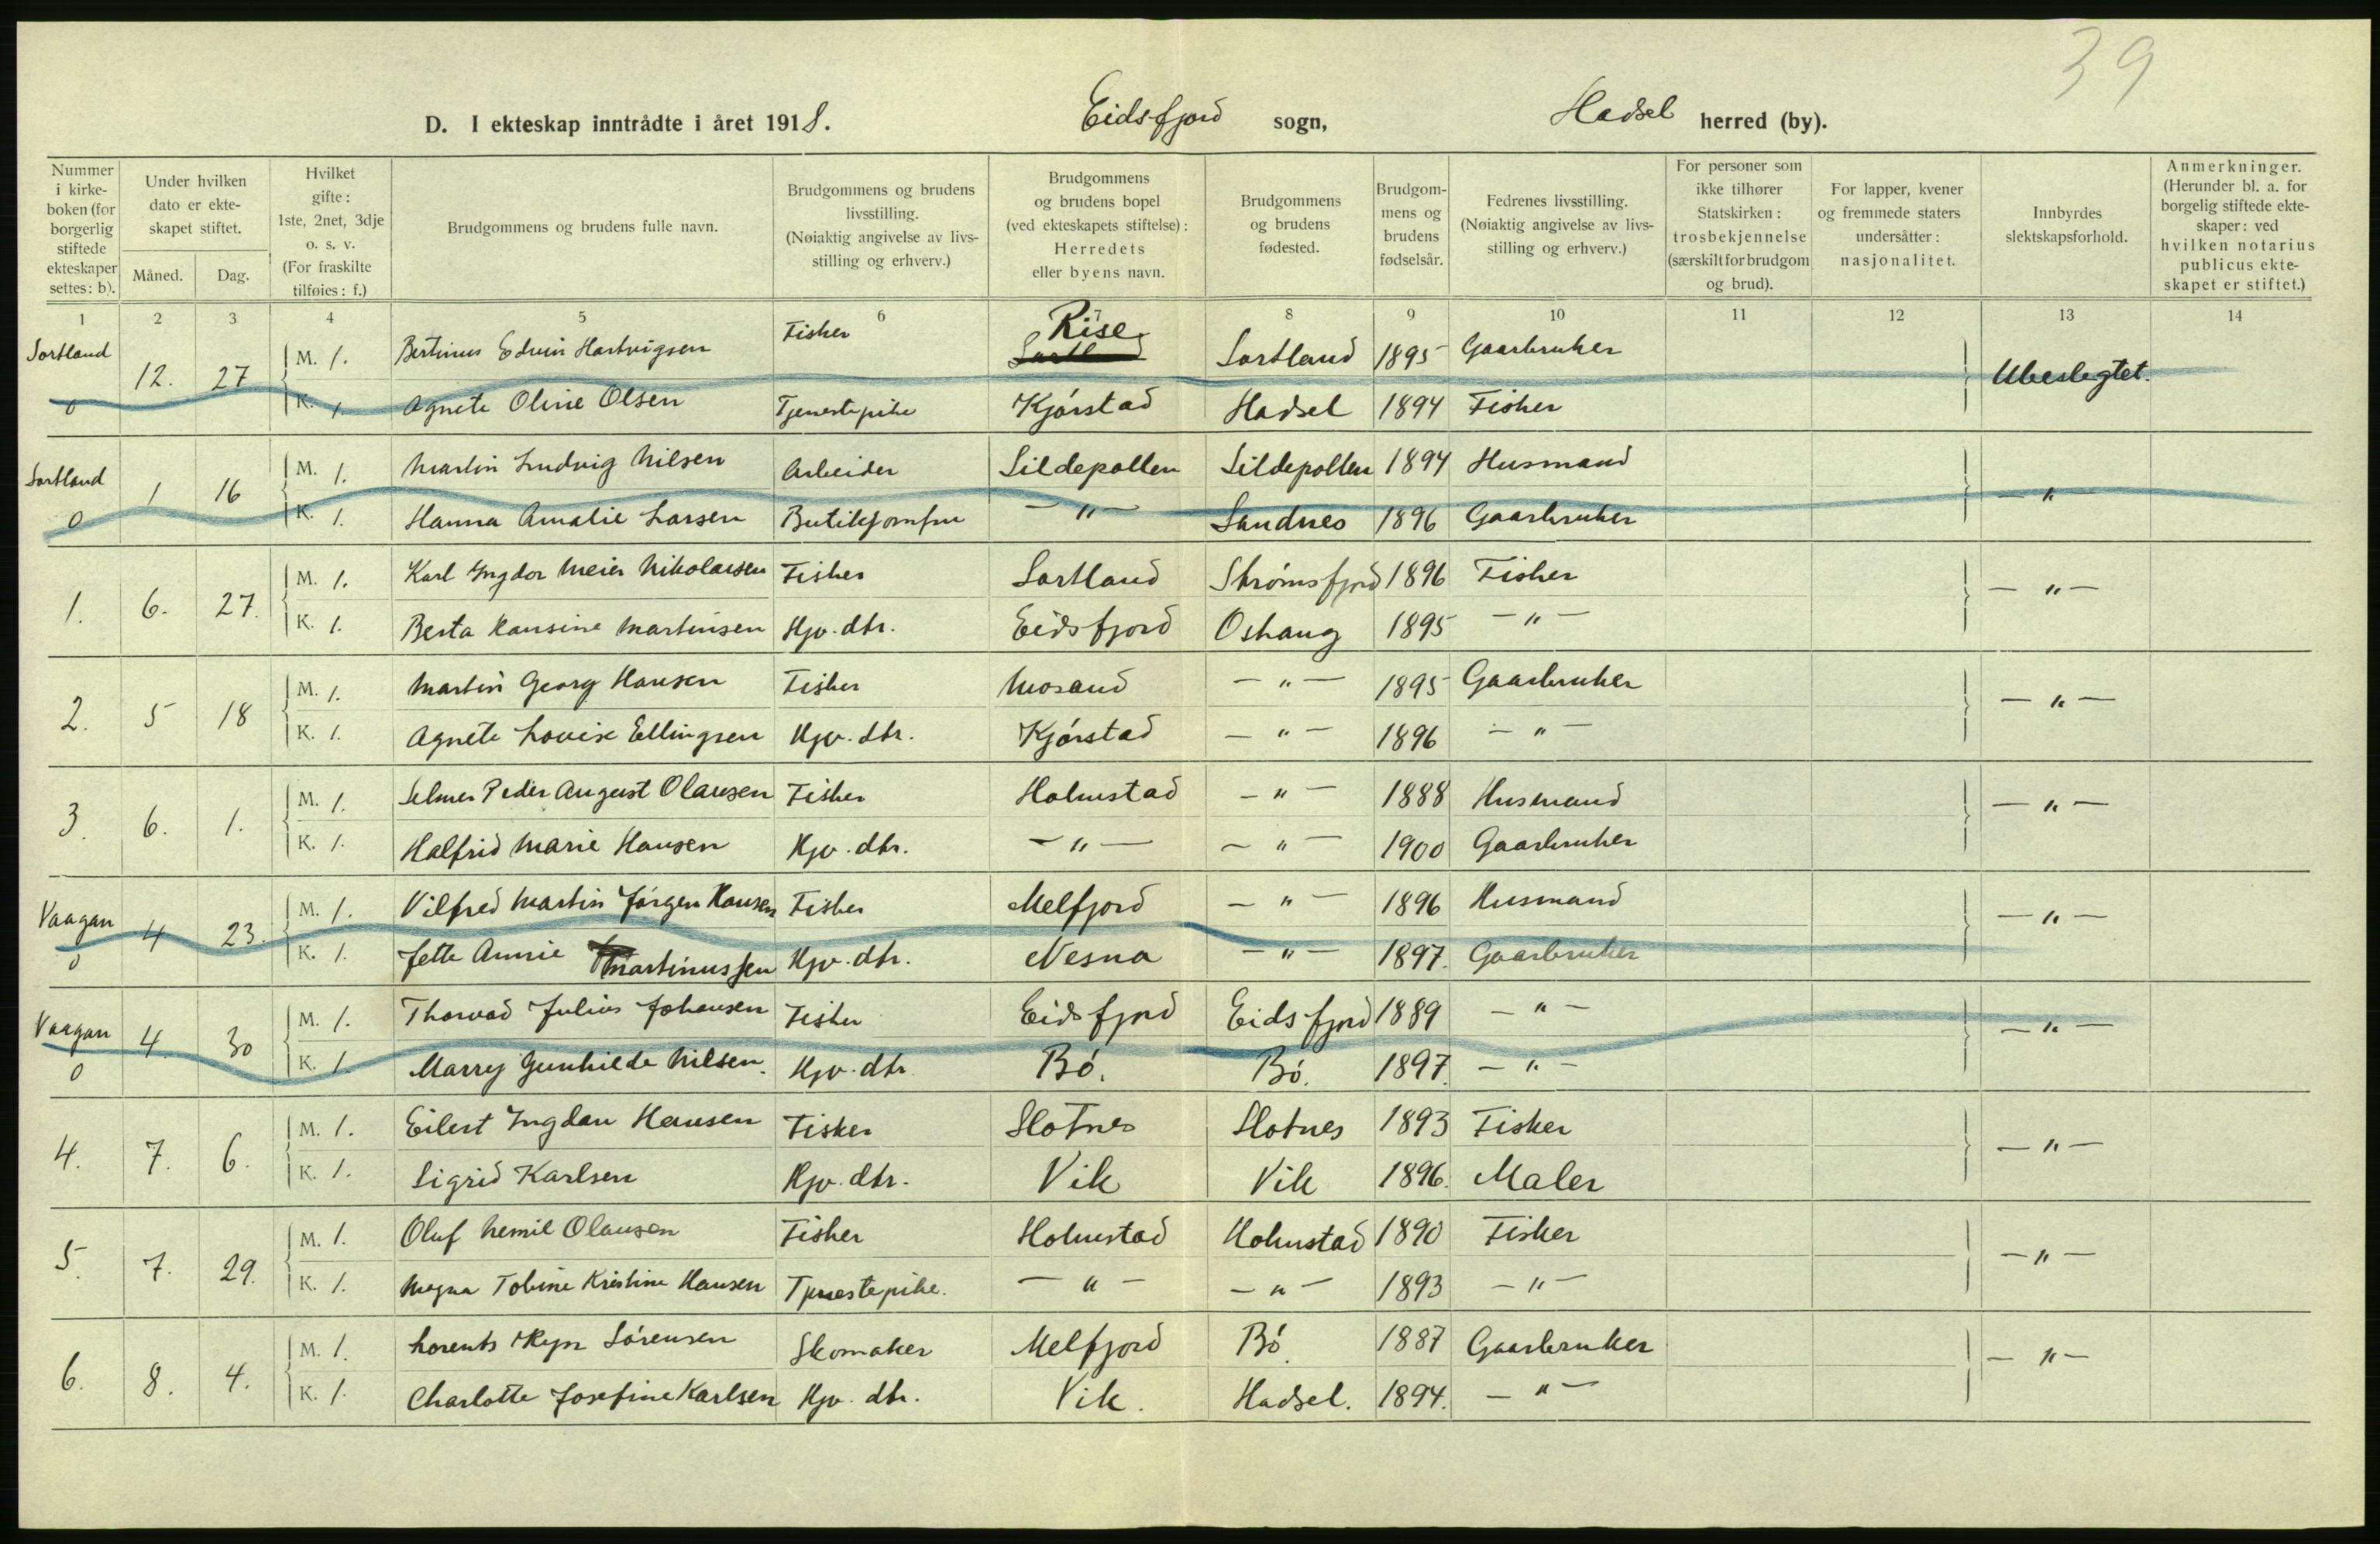 39
D. I ekteskap inntrådte i året 1918. Eidsfjord sogn, Hadsel herred (by).
Nummer i kirkeboken (for borgerlig stiftede ekteskaper settes: b).
Under hvilken dato er ekteskapet stiftet.
Måned. Dag.
Hvilket gifte: 1ste, 2net, 3dje o. s. v. (For fraskilte tilføies: f.)
Brudgommens og brudens fulle navn.
Brudgommens og brudens livsstilling. (Nøiaktig angivelse av livsstilling og erhverv.)
Brudgommens og brudens bopel (ved ekteskapets stiftelse): Herredets eller byens navn.
Brudgommens og brudens fødested.
Brudgommens og brudens fødselsår.
Fedrenes livsstilling. (Nøiaktig angivelse av livsstilling og erhverv.)
For personer som ikke tilhører Statskirken: trosbekjennelse (særskilt for brudgom og brud).
For lapper, kvener og fremmede staters undersåtter: nasjonalitet.
Innbyrdes slektskapsforhold.
Anmerkninger. (Herunder bl. a. for borgelig stiftede ekteskaper: ved hvilken notarius publicus ekteskapet er stiftet.)
1 2 3 4 5 6 7 8 9 10 11 12 13 14
Sortland 12. 27 M. 1. Bertinus Edvin Hartvigsen Fisker Rise Sortland 1895 Gaarbruker Ubeslegtet.
0 K. 1. Agnete Oline Olsen Tjenestepike Kjørstad Hadsel 1894 Fisker
Sortland 1 16 M. 1. Martin Ludvig Nilsen Arbeider Sildepollen Sildepollen 1894 Husmand — " —
0 K. 1. Hanna Amalie Larsen Butikjomfru — " — Sandnes 1896 Gaarbruker
1. 6. 27. M. 1. Karl Ingdor Meier Nikolaisen Fisker Sortland Strømsfjord 1896 Fisker — " —
K. 1. Berta Hansine Martinsen Hjv. dtr. Eidsfjord Oshaug 1895 — " —
2. 5 18 M. 1. Martin Georg Hansen Fisker Mosand — " — 1895 Gaarbruker — " —
K. 1. Agnete Lovise Ellingsen Hjv. dtr. Kjørstad — " — 1896 — "
3. 6. 1. M. 1. Selmer Peder August Olausen Fisker Holmstad — " — 1888 Husmand — " —
K. 1. Halfrid Marie Hansen Hjv. dtr. — " — — " — 1900 Gaarbruker
Vaagan 4 23. M. 1. Vilfred Martin Jørgen Hansen Fisker Melfjord — " — 1896 Husmand — " —
0 K. 1. Jette Annie Martinussen Hjv. dtr. Nesna — " — 1897. Gaarbruker
Vaagan 4. 30 M. 1. Thorvad Julius Johansen Fisker Eidsfjord Eidsfjord 1889 — " — — " —
0 K. 1. Marry Gunhilde Nilsen. Hjv. dtr. Bø. Bø. 1897. — " —
4. 7. 6. M. 1. Eilert Ingdau Hansen Fisker Slotnes Slotnes 1893 Fisker — " —
K. 1. Sigrid Karlsen Hjv. dtr. Vik Vik 1896. Maler
5. 7. 29. M. 1. Oluf Hemil Olausen Fisker Holmstad Holmstad 1890 Fisker — " —
K. 1. Magna Tobine Kristine Hansen Tjenestepike. — " — — " — 1893 — " —
6. 8. 4. M. 1. Lorents Sørensen Skomaker Melfjord Bø. 1887 Gaarbruker — " —
K. 1. Charlotte Josefine Karlsen Hjv. dtr. Vik. Hadsel. 1894. — " —